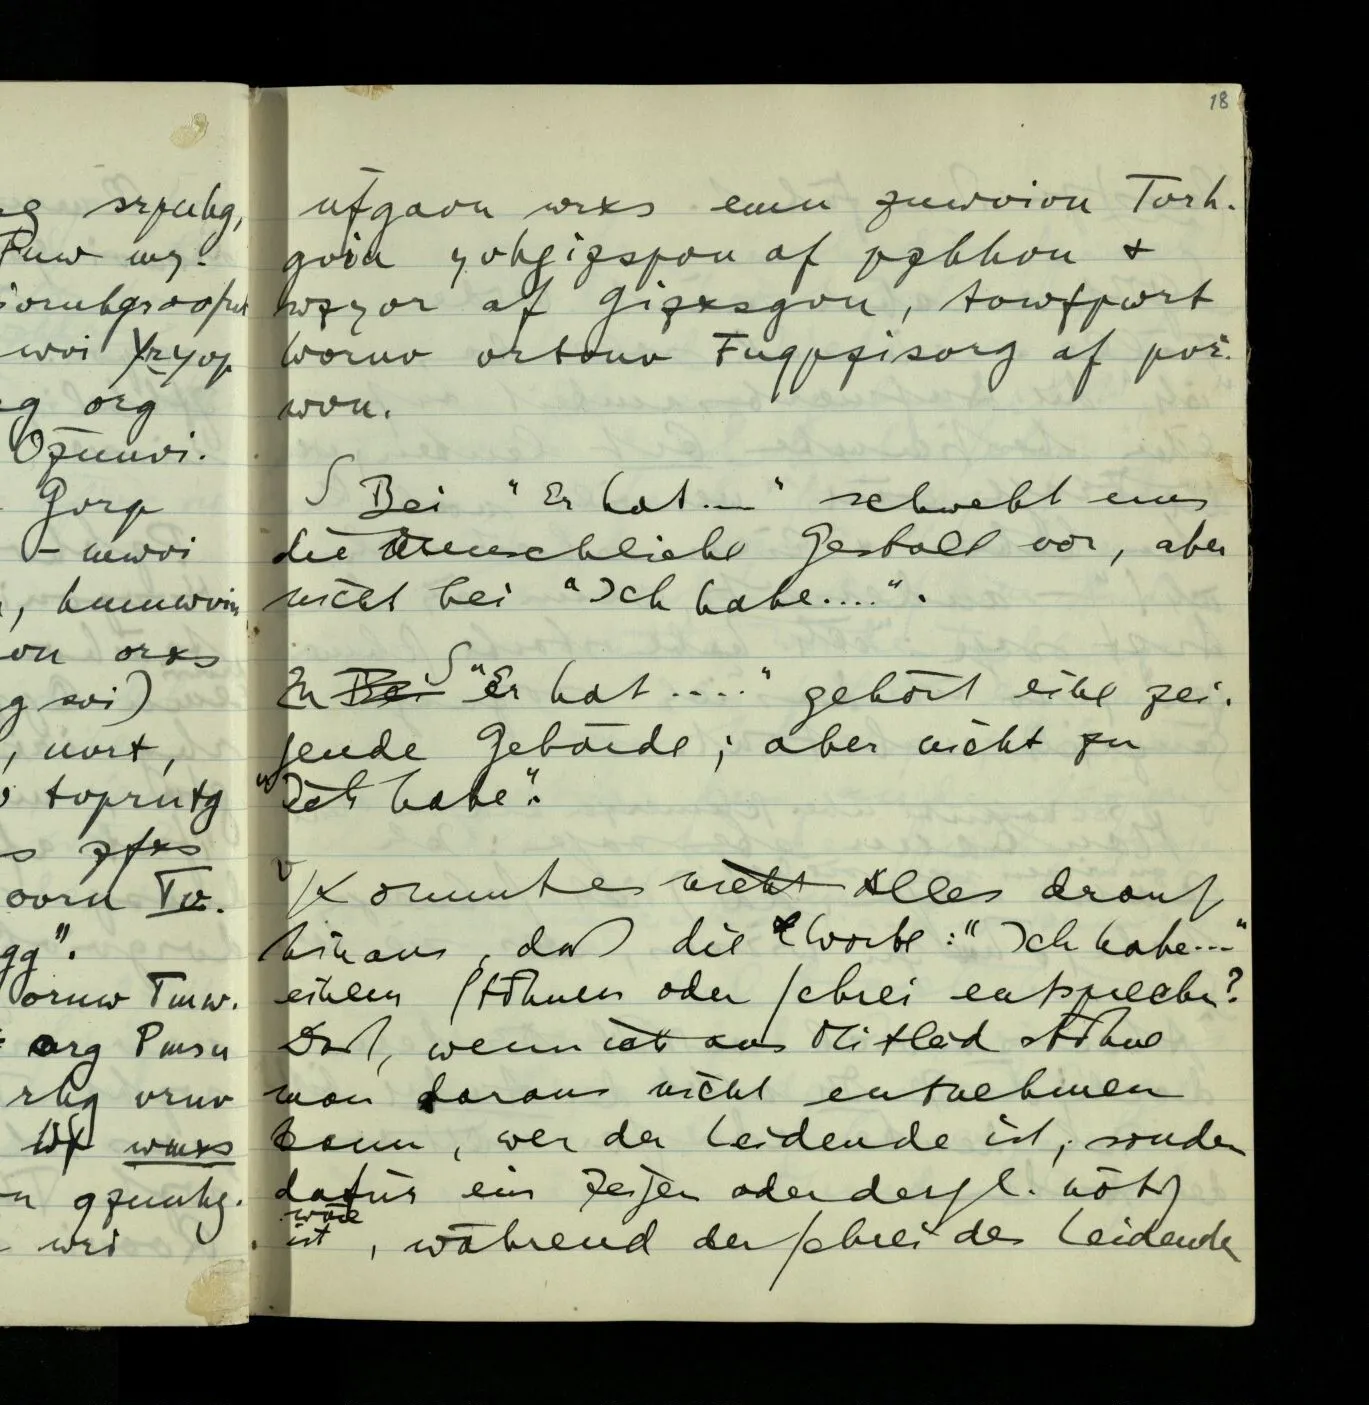 srpuhg,
Puw
wvi
org
Ozuuvi.
Gorp
– uuwvi
ou orxs
g svi)
, uort,
toprutg
s zfxs
ooru Tv.
gg".
oruw Tmw.
org Pmsu
rhg vruo
wmxs
gzuuhg.
wri
18
ufgaou wrxs emu zuwviou Torh-
goiu yohgizspou af pzhhou &
wzyor af Gizxsgou, towfpwrt
woruo ortouo Fuqpzisorg af poi-
wou.
S Bei "Er hat ...." schwebt uns
die menschliche Gestalt vor, aber
nicht bei "Ich habe....".
Zu Bei S "Er hat ...." gehört eine zei-
gende Gebärde; aber nicht zu
"Ich habe".
Kommt es nicht Alles drauf
hinaus, daß die Worte: "Ich habe..."
einem Stöhnen oder Schrei entsprechen?
Daß, wenn ich aus Mitleid stöhne
man daraus nicht entnehmen
kann, wer der Leidende ist; sondern
dafür ein Zeigen oder dergl. nötig
wäre
ist, während der Schrei des Leidenden